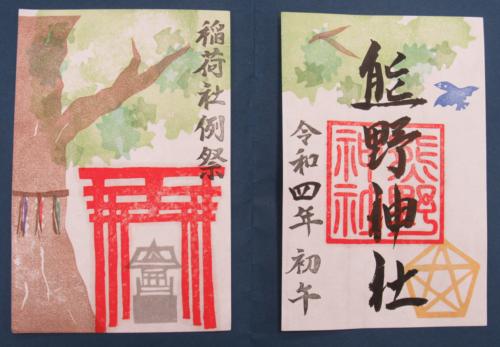 稲荷社例祭
熊野神社
令和四年 初午
熊野
神社